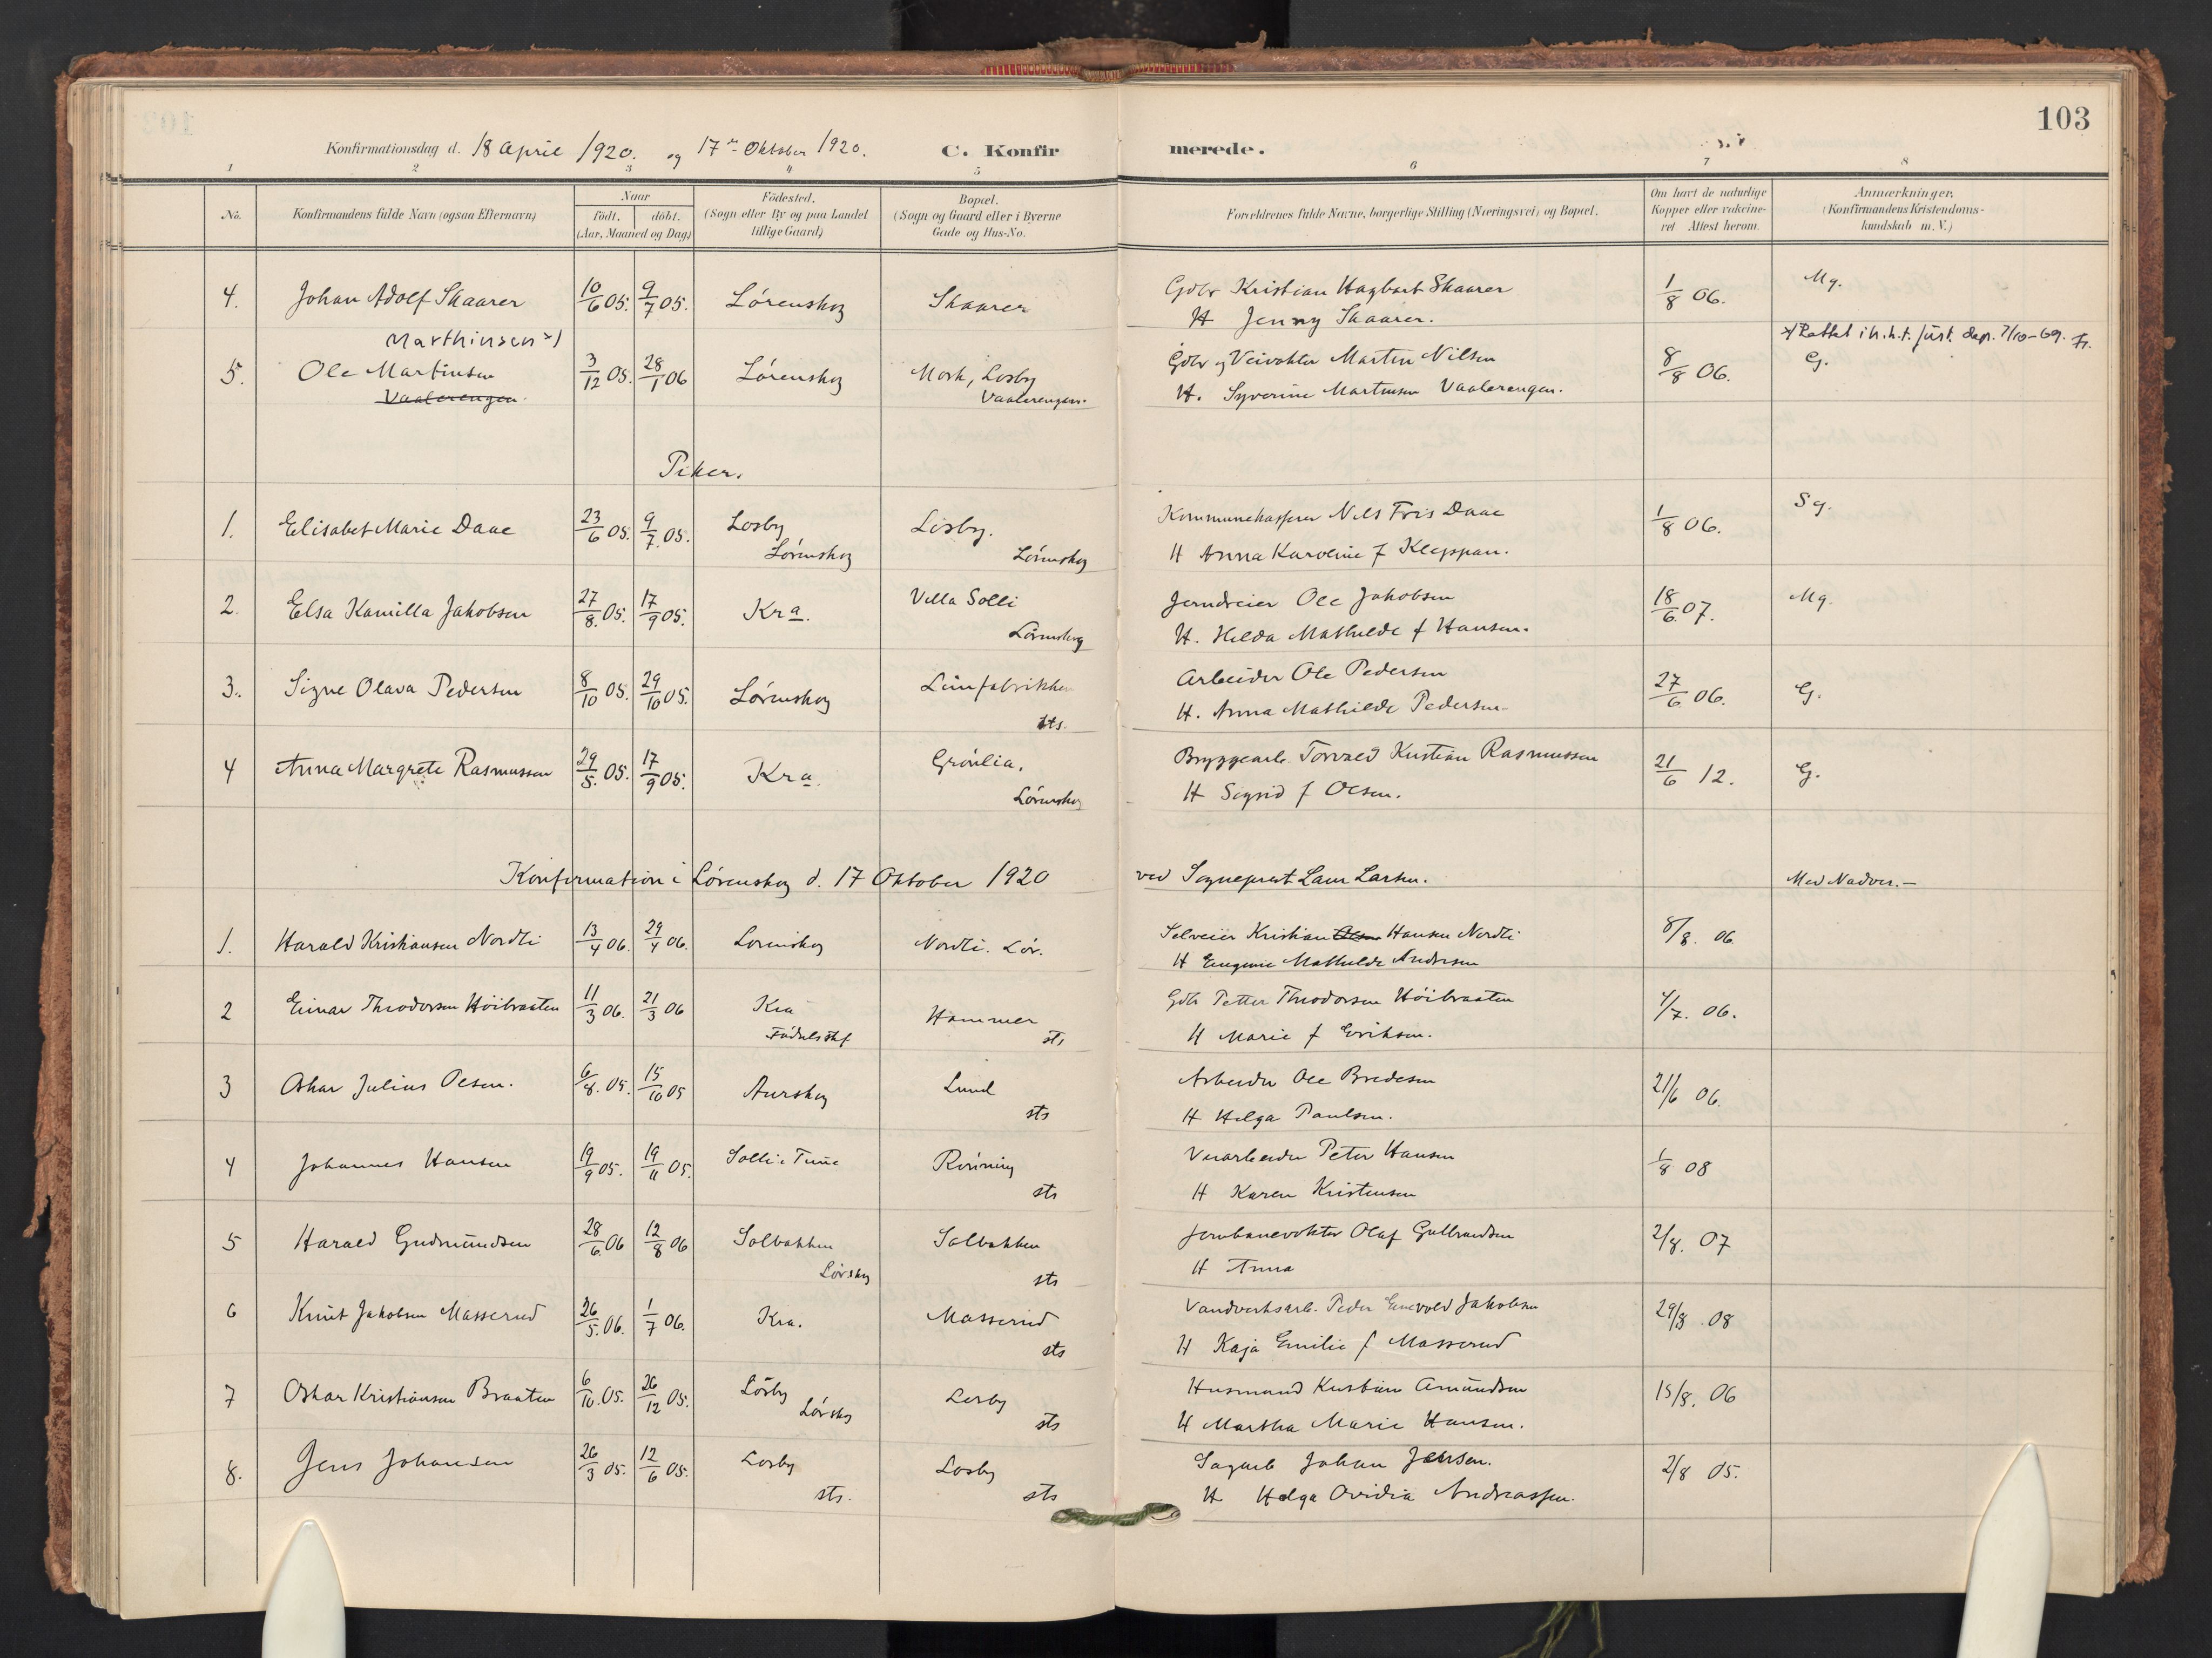 103
Konfirmationsdag d. 18 April 1920. og 17de Oktober 1920. C. Konfirmerede.
1 2 3 4 5 6 7 8
No. Konfirmandens fulde Navn (ogsaa Efternavn) Naar födt. döbt. (Aar, Maaned og Dag) Födested. (Sogn eller By og paa Landet tillige Gaard) Bopæl. (Sogn og Gaard eller i Byerne Gade og Hus-No. Forældrenes fulde Navne, borgerlige Stilling (Næringsvei) og Bopæl. Om havt de naturlige Kopper eller vakcineret Attest herom. Anmærkninger, (Konfirmandens Kristendomskundskab m. V.)
4. Johan Adolf Skaarer 10/6 05. 9/7 05. Lørenskog Skaarer Gdbr Kristian Hagbart Skaarer 1/8 06. Mg.
H Jenny Skaarer.
Marthinsen x) x) Rettet i h.h.t. just. dep. 7/10-69.
5. Ole Martinsen 3/12 05. 28/1 06 Lørenskog Mork, Losby Gdbr og Veivokter Martin Nilsen 8/8 06. G.
Vaalerengen. Vaalerengen. H. Syverine Martinsen Vaalerengen.
Piker.
1. Elisabet Marie Daae 23/6 05. 9/7 05. Losby Losby. Kommunekasserer Nils Fris Daae 1/8 06. Sg.
Lørenskog Lørenskog H Anna Karoline f Kleppan.
2. Elsa Kamilla Jakobsen 27/8. 05. 17/9 05. Kra. Villa Solli Jerndreier Ole Jakobsen 18/6. 07. Mg.
Lørenskog H. Hilda Mathilde f Hansen.
3. Signe Olava Pedersen 8/10 05. 29/10 05. Lørenskog Limfabrikken Arbeider Ole Pedersen 27/6 06. G.
sts. H. Anna Mathilde Pedersen
4 Anna Margrete Rasmussen 29/5. 05. 17/9 05. Kra. Grønlia. Bryggearb. Torvald Kristian Rasmussen 21/6 12. G.
Lørenskog H Sigrid f Olsen.
Konfirmation i Lørenskog d. 17 Oktober 1920 ved Sogneprest Laur Larsen. Med Nadver.-
1. Harald Kristiansen Nordli 13/4 06. 29/4 06. Lørenskog Nordli. Lør. Selveier Kristian Olsen Hansen Nordli 8/8. 06.
H Eugenie Mathilde Andersen
2 Einar Theodorsen Höibraaten 11/3 06. 21/3 06 Kra Hammer Gdb Petter Theodorsen Höibraaten 4/7. 06.
Födselsstif sts H Marie f Eriksen.
3 Oskar Julius Olsen. 6/8. 05. 15/10 05 Aurskog Lund Arbeider Ole Bredesen 21/6 06.
sts H Helga Paulsen.
4 Johannes Hansen 19/9 05. 19/11 05. Solli i Tune Rønning Veiarbeider Peter Hansen 1/8 08
sts H Karen Kristensen
5 Harald Gudmundsen 28/6. 06 12/8 06 Solbakken Solbakken Jernbanevokter Olaf Gulbrandsen 2/8. 07
Lørskog sts H Anna
6 Knut Jakobsen Masserud 26/5. 06. 1/7 06. Kra. Masserud Vandverksarb. Peder Enevold Jakobsen 29/8 08
sts H Kaja Emilie f Masserud
7 Oskar Kristiansen Braaten 6/10. 05. 26/12 05. Losby Losby Husmand Kristian Amundsen 15/8. 06
Lørskog sts H Martha Marie Hansen.
8. Jens Johansen 26/3 05. 12/6 05. Losby Losby Sagarb Johan Jensen. 2/8 05.
sts. sts H Helga Ovidia Andreassen.